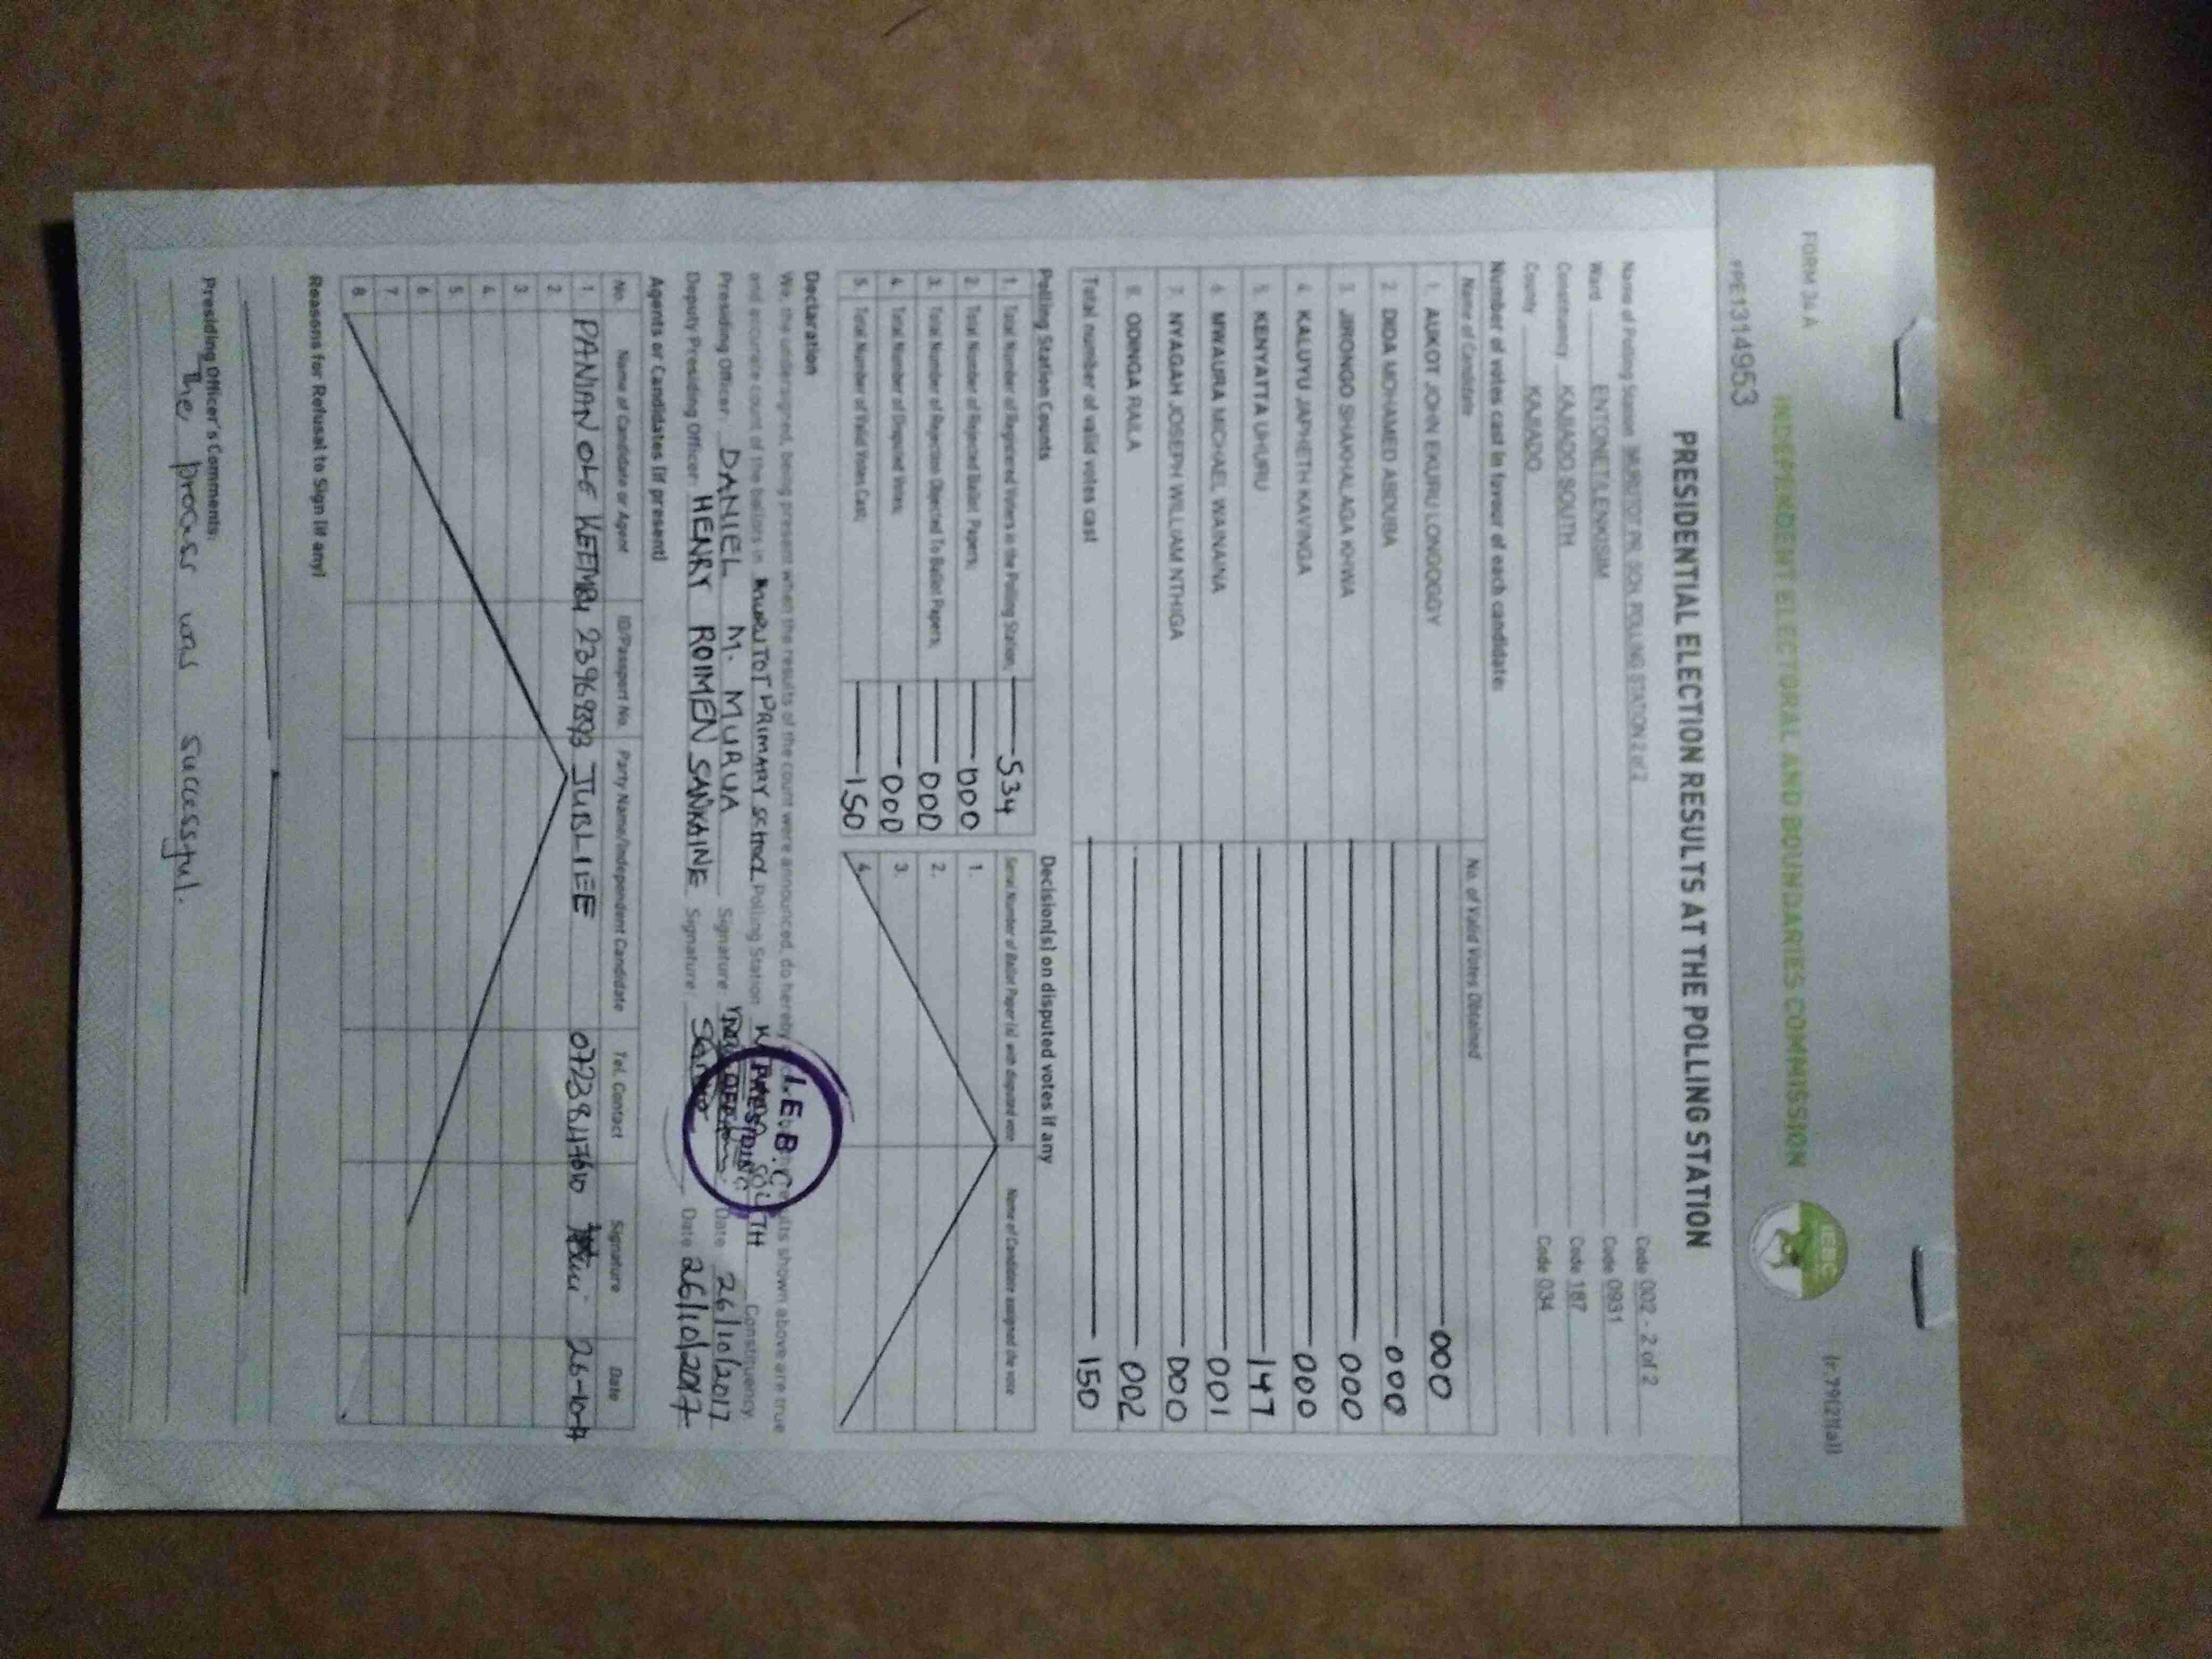 FORM 34 A
(r.79(2)(a))
INDEPENDENT ELECTORAL AND BOUNDARIES COMMISSION
IEBC
PRE1314953
PRESIDENTIAL ELECTION RESULTS AT THE POLLING STATION
Name of Polling Station MURUTOT PR. SCH. POLLING STATION 2 of 2 Code 002 - 2 of 2
Ward ENTONET/LENKISIM Code 0931
Constituency KAJIADO SOUTH Code 187
County KAJIADO Code 034
Number of votes cast in favour of each candidate:
Name of Candidate No. of Valid Votes Obtained
1. AUKOT JOHN EKURU LONGOGGY 000
2. DIDA MOHAMED ABDUBA 000
3. JIRONGO SHAKHALAGA KHWA 000
4. KALUYU JAPHETH KAVINGA 000
5. KENYATTA UHURU 147
6. MWAURA MICHAEL WAINAINA 001
7. NYAGAH JOSEPH WILLIAM NTHIGA 000
8. ODINGA RAILA 002
Total number of valid votes cast 150
Polling Station Counts
1. Total Number of Registered Voters in the Polling Station; 534
2. Total Number of Rejected Ballot Papers; 000
3. Total Number of Rejection Objected To Ballot Papers; 000
4. Total Number of Disputed Votes; 000
5. Total Number of Valid Votes Cast; 150
Decision(s) on disputed votes if any
Serial Number of Ballot Paper (s) with disputed vote Name of Candidate assigned the vote
1.
2.
3.
4.
Declaration
We, the undersigned, being present when the results of the count were announced, do hereby results shown above are true
and accurate count of the ballots in MURUTOT PRIMARY SCHOOL Polling Station SOUTH Constituency.
Presiding Officer: DANIEL M. MURUA Signature: Date: 26/10/2017
Deputy Presiding Officer: HENRY ROIMEN SANKAINE Signature: Date: 26/10/2017
I.E.B.C
PRESIDING
Agents or Candidates (if present)
No. Name of Candidate or Agent ID/Passport No. Party Name/Independent Candidate Tel. Contact Signature Date
1. PANIAN OLE JUBLIEE
2.
3.
4.
5.
6.
7.
8.
Reasons for Refusal to Sign (if any)
Presiding Officer's Comments:
The process was successful.